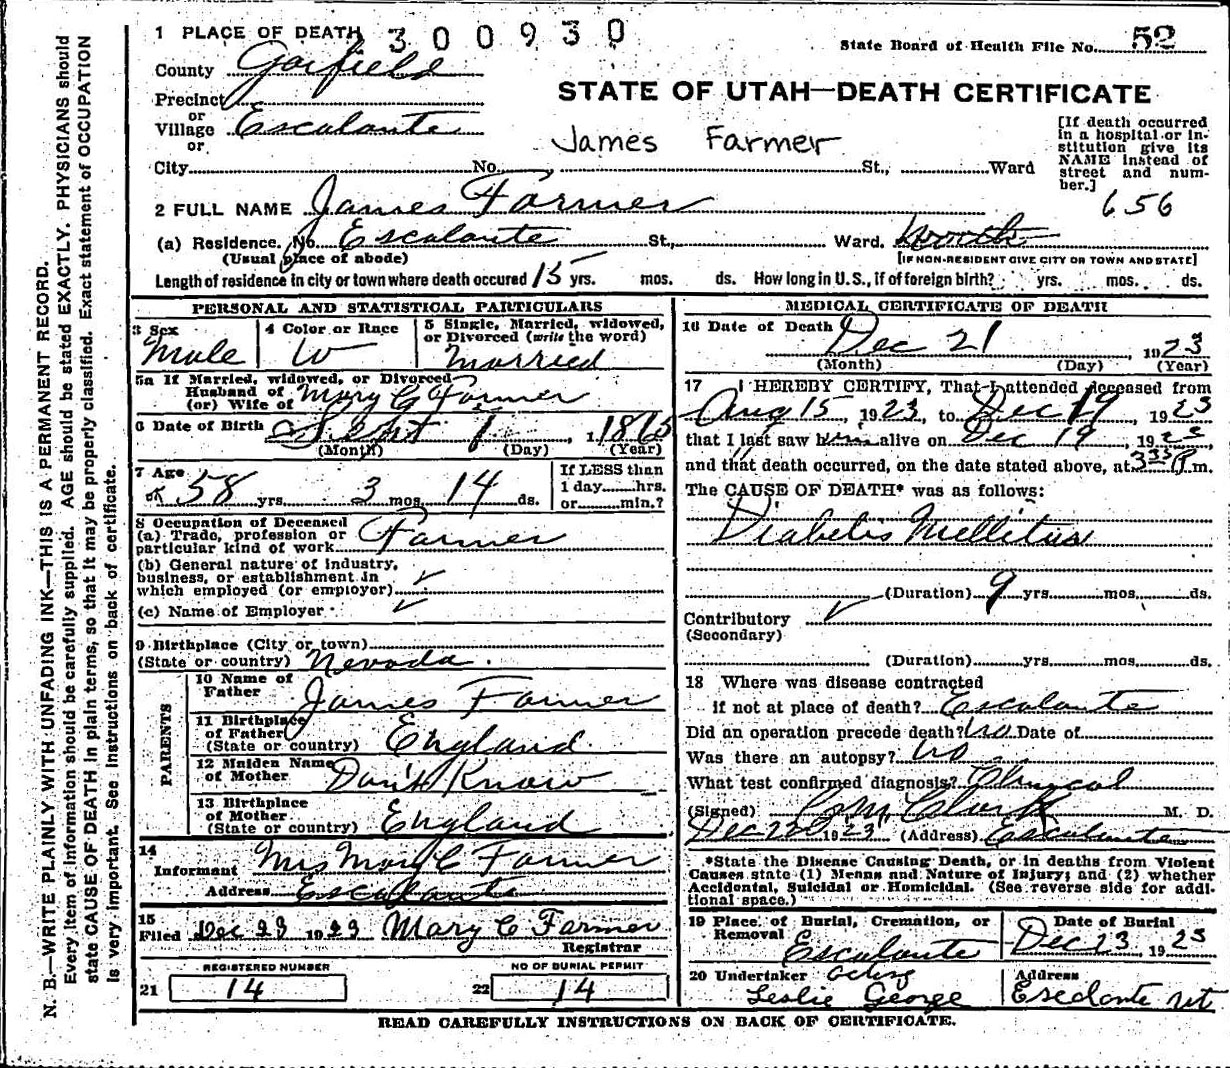 1 PLACE OF DEATH 2300930
State Board of Health File No. 52
County Garfield
STATE OF UTAH—DEATH CERTIFICATE
Precinct
or
Village Escalante
or
James Farmer
[If death occurred in a hospital or institution give its NAME instead of street and number.]
City No. St., Ward
656
2 FULL NAME James Farmer
(a) Residence. No. Escalante St., Ward. North
(Usual place of abode) [IF NON-RESIDENT GIVE CITY OR TOWN AND STATE]
Length of residence in city or town where death occured 15 yrs. mos. ds. How long in U.S., if of foreign birth? yrs. mos. ds.
PERSONAL AND STATISTICAL PARTICULARS
3 Sex Male
4 Color or Race W
5 Single, Married, widowed, or Divorced (write the word) Married
5a If Married, widowed, or Divorced
Husband of
(or) Wife of Mary C Farmer
6 Date of Birth Sept 7 1865
(Month) (Day) (Year)
7 Age ok 58 yrs. 3 mos. 14 ds.
If LESS than
1 day hrs.
or min.?
8 Occupation of Deceased
(a) Trade, profession or
particular kind of work Farmer
(b) General nature of industry,
business, or establishment in
which employed (or employer)
(c) Name of Employer
9 Birthplace (City or town)
(State or country) Nevada.
PARENTS
10 Name of
Father James Farmer
11 Birthplace
of Father
(State or country) England
12 Maiden Name
of Mother Don't Know
13 Birthplace
of Mother
(State or country) England
14
Informant Mrs Mary C Farmer
Address Escalante
15
Filed Dec 23 1923 Mary C Farmer
Registrar
REGISTERED NUMBER
21 14
NO OF BURIAL PERMIT
22 14
MEDICAL CERTIFICATE OF DEATH
16 Date of Death Dec 21, 1923
(Month) (Day) (Year)
17 I HEREBY CERTIFY, That I attended deceased from
Aug 15, 1923, to Dec 19, 1923
that I last saw him alive on Dec 19, 1923
and that death occurred, on the date stated above, at P.m.
The CAUSE OF DEATH* was as follows:
Diabetis Mellitus
(Duration) 9 yrs. mos. ds.
Contributory
(Secondary)
(Duration) yrs. mos. ds.
18 Where was disease contracted
if not at place of death? Escalante
Did an operation precede death? No Date of
Was there an autopsy? No
What test confirmed diagnosis? Clinical
(Signed) Clark M. D.
Dec 22 1923 (Address) Escalante
*State the Disease Causing Death, or in deaths from Violent
Causes state (1) Menns and Nature of Injury; and (2) whether
Accidental, Suicidal or Homicidal. (See reverse side for addi-
tional space.)
19 Place of Burial, Cremation, or
Removal Escalante
Date of Burial
Dec 23, 1923
20 Undertaker acting
Leslie George
Address
Escalante Ut
READ CAREFULLY INSTRUCTIONS ON BACK OF CERTIFICATE.
N. B.—WRITE PLAINLY WITH UNFADING INK—THIS IS A PERMANENT RECORD.
Every item of information should be carefully supplied. AGE should be stated EXACTLY. PHYSICIANS should
state CAUSE OF DEATH in plain terms, so that it may be properly classified. Exact statement of OCCUPATION
is very important. See instructions on back of certificate.